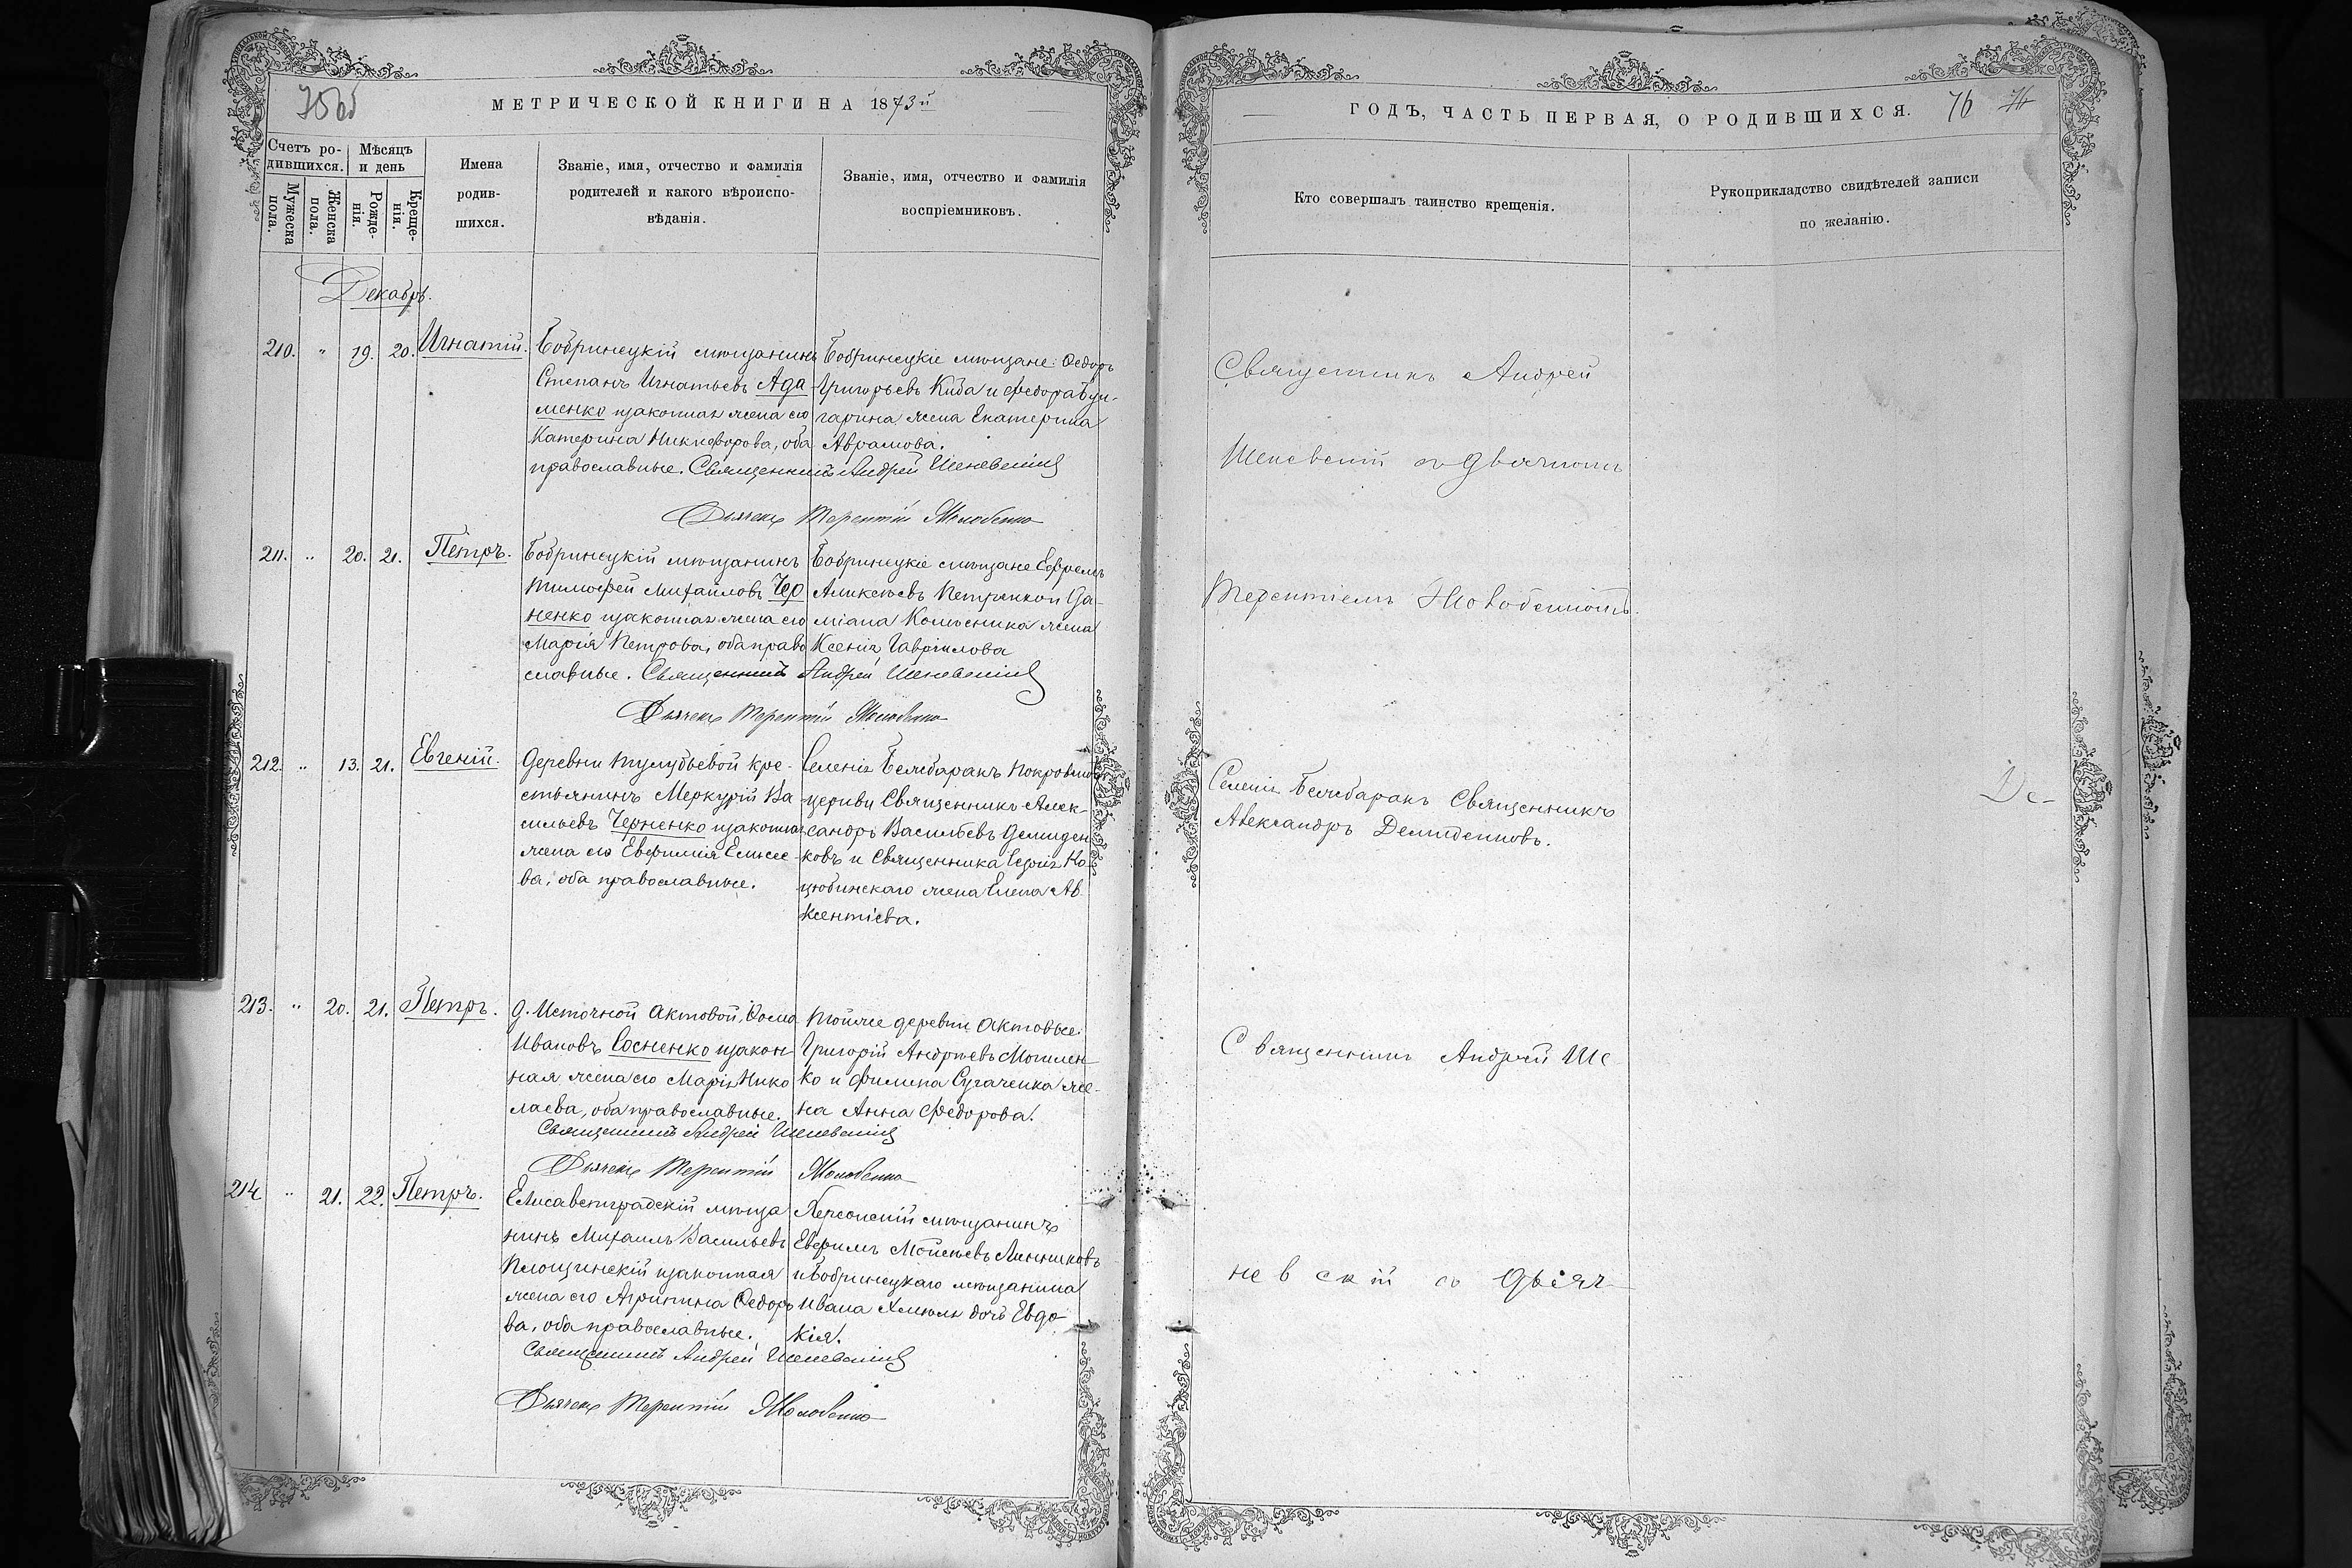 МЕТРИЧЕСКОЙ КНИГИ НА 1873й
Счетъ ро-
дившихся.
Мѣсяцъ
и день
Мужеска
пола.
Женска
пола.
Рожде-
нія.
Креще-
нія.
Имена
родив-
шихся.
Званіе, имя, отчество и фамилія
родителей и какого вѣроиспо-
вѣданія.
Званіе, имя, отчество и фамилія
воспріемниковъ.
Декабрь.
210. " 19. 20. Игнатій.
Бобринецкій мѣщанинъ
Степанъ Игнатьевъ Ада-
менко изаконная жена его
Катерина Никифорова, оба
православные. Священникъ Андрей
Бобринецкіе мѣщане: Ѳедоръ
Григорьевъ Киба и Федора
гарина жена Екатерина
Аврамова.
Дьячекъ Терентій
211. " 20. 21. Петръ.
Бобринецкій мѣщанинъ
Тимофей Михайловъ Чер
ненко изаконная жена его
Марія Петрова, оба право
славные. Священникъ Андрей
Бобринецкіе мѣщане Ефремъ
Аликсѣевъ Петренко и Да-
міана Колѣсника жена
Ксенія Гавріилова
Дьячекъ Терентій
212. " 13. 21. Евгеній.
Деревни Тулубьевой кре-
стьянинъ Меркурій Ва
сильевъ Черненко изаконная
жена его Евфимія Елисее-
ва, оба православные.
Селенія Белебаракъ Покровской
церкви Священникъ Алек-
сандръ Васильевъ Демиден
ковъ и Священника Ко
цюбинскаго жена Елена Ав
ксентіева.
213. " 20. 21. Петръ.
д. Источной Актовой, Ѳома
Ивановъ Сосненко изакон-
ная жена его Марія Нико
лаева, оба православные.
Священникъ Андрей
Тойже деревни Актовые
Григорій Андрѣевъ Могилен-
ко и Филипа Сугаченка же-
на Анна Федорова.
Дьячекъ Терентій
214 " 21. 22. Петръ.
Елисаветградскій мѣща
нинъ Михаилъ Васильевъ
Площинскій изаконная
жена его Агрипина Ѳедоро
ва, оба православные.
Священникъ Андрей
Херсонскій мѣщанинъ
Евфимъ Мойсѣевъ Линниковъ
и Бобринецкаго мѣщанина
Ивана дочь Евдо
кія.
Дьячекъ Терентій
ГОДЪ, ЧАСТЬ ПЕРВАЯ, О РОДИВШИХСЯ. 76
Кто совершалъ таинство крещенія.
Рукоприкладство свидѣтелей записи
по желанію.
Священникъ Андрей
съ дьячкомъ
Терентіемъ
Селенія Белебаракъ Священникъ
Александръ Демиденковъ.
Де-
Священникъ Андрей Ше
невскій съ дьяч-